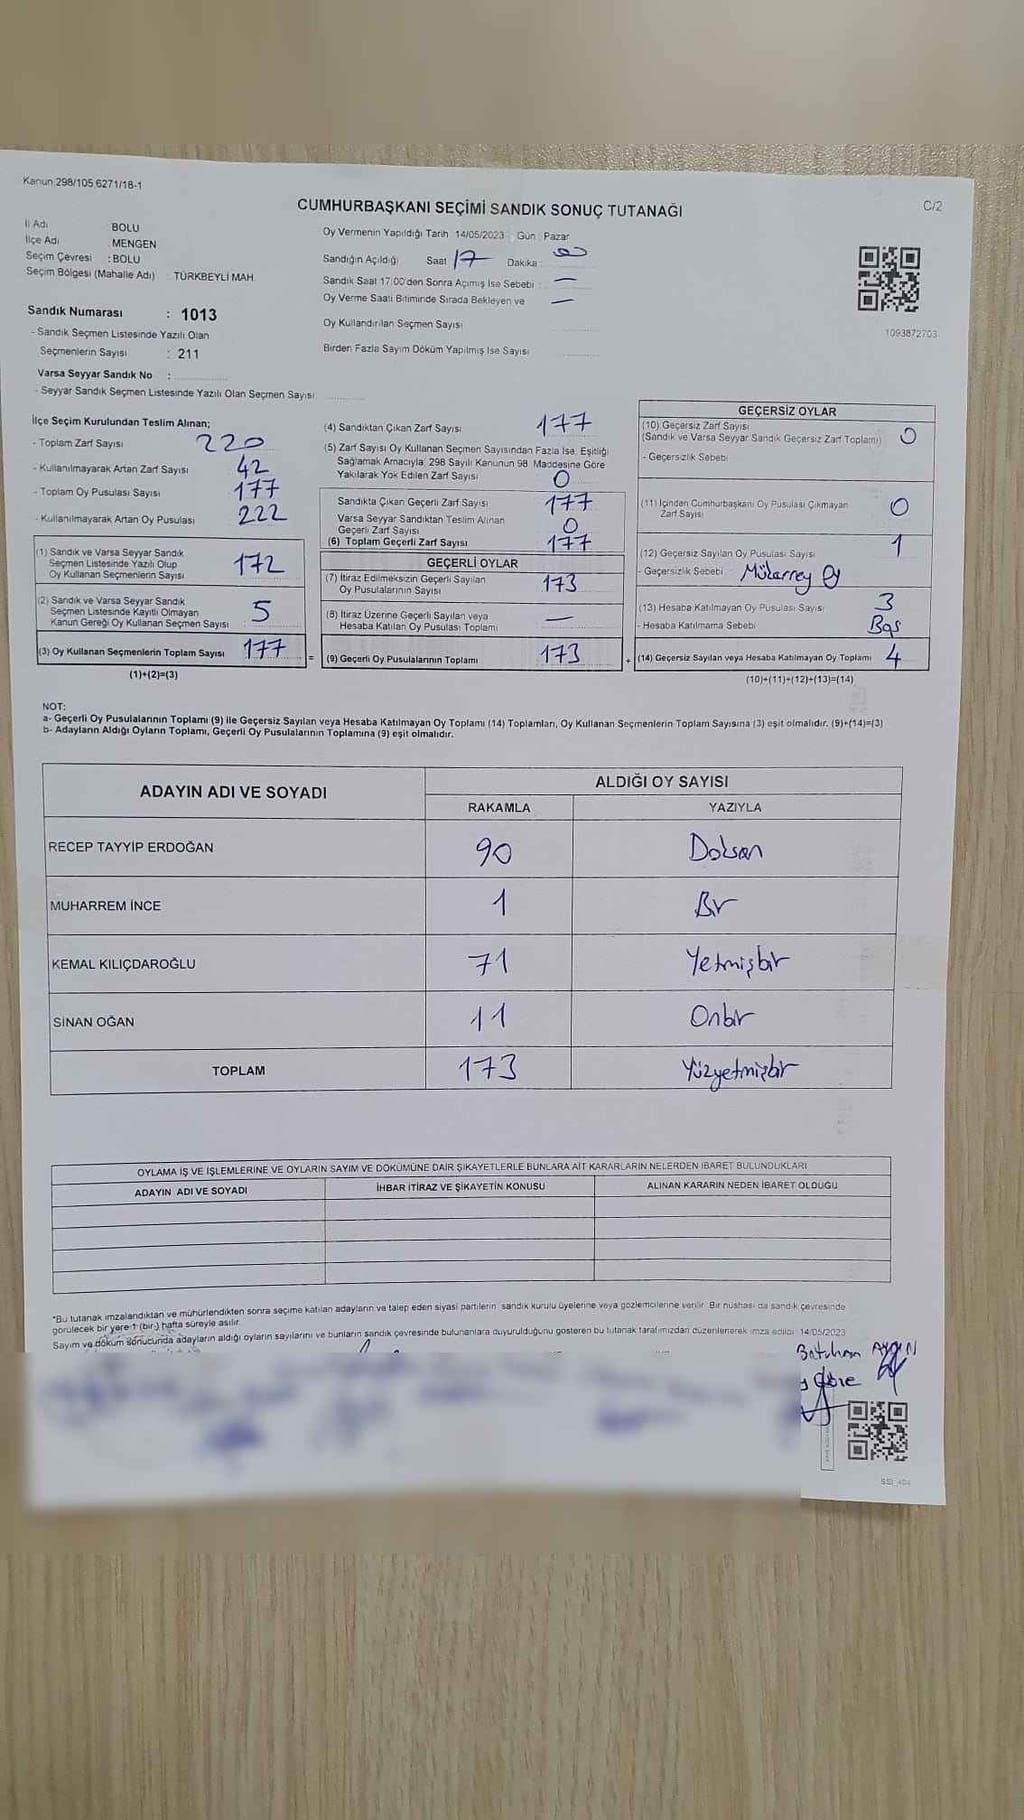 Kanun 298/105 6271/18-1
CUMHURBAŞKANI SEÇİMİ SANDIK SONUÇ TUTANAĞI
C/2
İl Adı BOLU
İlçe Adı MENGEN
Seçim Çevresi : BOLU
Seçim Bölgesi (Mahalle Adı) : TÜRKBEYLİ MAH.
Sandık Numarası : 1013
- Sandık Seçmen Listesinde Yazılı Olan
Seçmenlerin Sayısı : 211
Varsa Seyyar Sandık No :
- Seyyar Sandık Seçmen Listesinde Yazılı Olan Seçmen Sayısı
Oy Vermenin Yapıldığı Tarih 14/05/2023 Gün : Pazar
Sandığın Açıldığı Saat 17 Dakika :
Sandık Saat 17:00'den Sonra Açımış İse Sebebi : —
Oy Verme Saati Bitiminde Sırada Bekleyen ve —
Oy Kullandırılan Seçmen Sayısı
Birden Fazla Sayım Döküm Yapılmış İse Sayısı
1093872703
İlçe Seçim Kurulundan Teslim Alınan;
- Toplam Zarf Sayısı 220
- Kullanılmayarak Artan Zarf Sayısı 42
- Toplam Oy Pusulası Sayısı 177
- Kullanılmayarak Artan Oy Pusulası 222
(1) Sandık ve Varsa Seyyar Sandık
Seçmen Listesinde Yazılı Olup
Oy Kullanan Seçmenlerin Sayısı 172
(2) Sandık ve Varsa Seyyar Sandık
Seçmen Listesinde Kayıtlı Olmayan
Kanun Gereği Oy Kullanan Seçmen Sayısı 5
(3) Oy Kullanan Seçmenlerin Toplam Sayısı 177 =
(1)+(2)=(3)
(4) Sandıktan Çıkan Zarf Sayısı 177
(5) Zarf Sayısı Oy Kullanan Seçmen Sayısından Fazla İse, Eşitliği
Sağlamak Amacıyla, 298 Sayılı Kanunun 98. Maddesine Göre
Yakılarak Yok Edilen Zarf Sayısı 0
Sandıkta Çıkan Geçerli Zarf Sayısı 177
Varsa Seyyar Sandıktan Teslim Alınan
Geçerli Zarf Sayısı 0
(6) Toplam Geçerli Zarf Sayısı 177
GEÇERLİ OYLAR
(7) İtiraz Edilmeksizin Geçerli Sayılan
Oy Pusulalarının Sayısı 173
(8) İtiraz Üzerine Geçerli Sayılan veya
Hesaba Katılan Oy Pusulası Toplamı —
(9) Geçerli Oy Pusulalarının Toplamı 173 +
GEÇERSİZ OYLAR
(10) Geçersiz Zarf Sayısı
(Sandık ve Varsa Seyyar Sandık Geçersiz Zarf Toplamı) 0
- Geçersizlik Sebebi
(11) İçinden Cumhurbaşkanı Oy Pusulası Çıkmayan
Zarf Sayısı 0
(12) Geçersiz Sayılan Oy Pusulası Sayısı 1
- Geçersizlik Sebebi : Oy
(13) Hesaba Katılmayan Oy Pusulası Sayısı 3
- Hesaba Katılmama Sebebi Boş
(14) Geçersiz Sayılan veya Hesaba Katılmayan Oy Toplamı 4
(10)+(11)+(12)+(13)=(14)
NOT:
a- Geçerli Oy Pusulalarının Toplamı (9) ile Geçersiz Sayılan veya Hesaba Katılmayan Oy Toplamı (14) Toplamları, Oy Kullanan Seçmenlerin Toplam Sayısına (3) eşit olmalıdır. (9)+(14)=(3)
b- Adayların Aldığı Oyların Toplamı, Geçerli Oy Pusulalarının Toplamına (9) eşit olmalıdır.
ADAYIN ADI VE SOYADI ALDIĞI OY SAYISI
RAKAMLA YAZIYLA
RECEP TAYYİP ERDOĞAN 90 Doksan
MUHARREM İNCE 1 Bir
KEMAL KILIÇDAROĞLU 71 Yetmişbir
SİNAN OĞAN 11 Onbir
TOPLAM 173 Yüzyetmişbir
OYLAMA İŞ VE İŞLEMLERİNE VE OYLARIN SAYIM VE DÖKÜMÜNE DAİR ŞİKAYETLERLE BUNLARA AİT KARARLARIN NELERDEN İBARET BULUNDUKLARI
ADAYIN ADI VE SOYADI İHBAR İTİRAZ VE ŞİKAYETİN KONUSU ALINAN KARARIN NEDEN İBARET OLDUĞU
*Bu tutanak imzalandıktan ve mühürlendikten sonra seçime katılan adayların ve talep eden siyasi partilerin sandık kurulu üyelerine veya gözlemcilerine verilir. Bir nüshası da sandık çevresinde
görülecek bir yere 1 (bir) hafta süreyle asılır.
Sayım ve döküm sonucunda adayların aldığı oyların sayılarını ve bunların sandık çevresinde bulunanlara duyurulduğunu gösteren bu tutanak tarafımızdan düzenlenerek imza edildi. 14/05/2023
Batuhan AYGIN